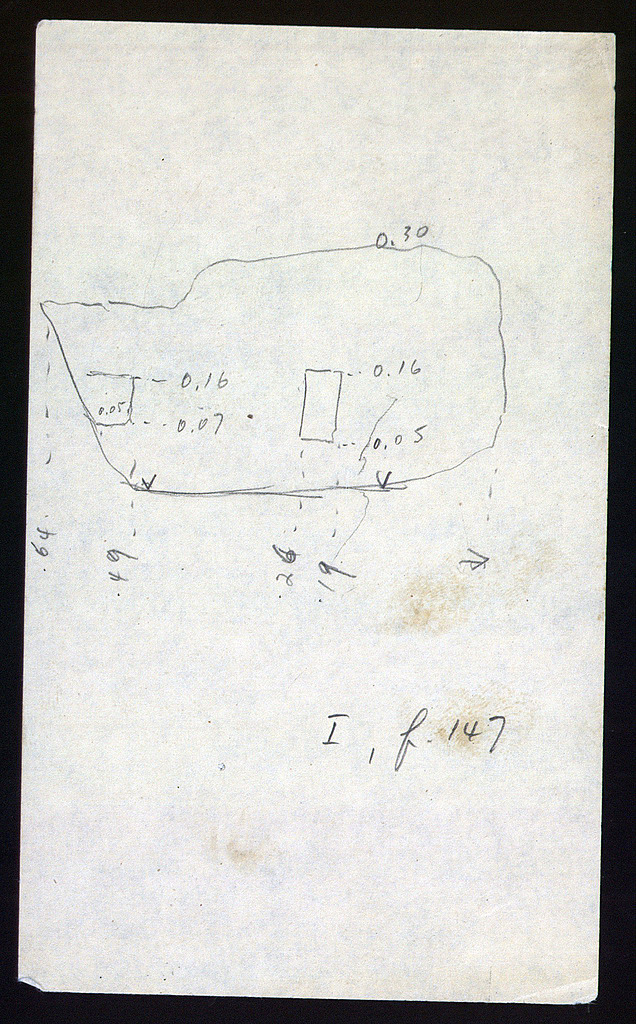 0.30
0.16
0.16
0.05
0.07
0.05
.64
.49
.26
.19
I, p. 147